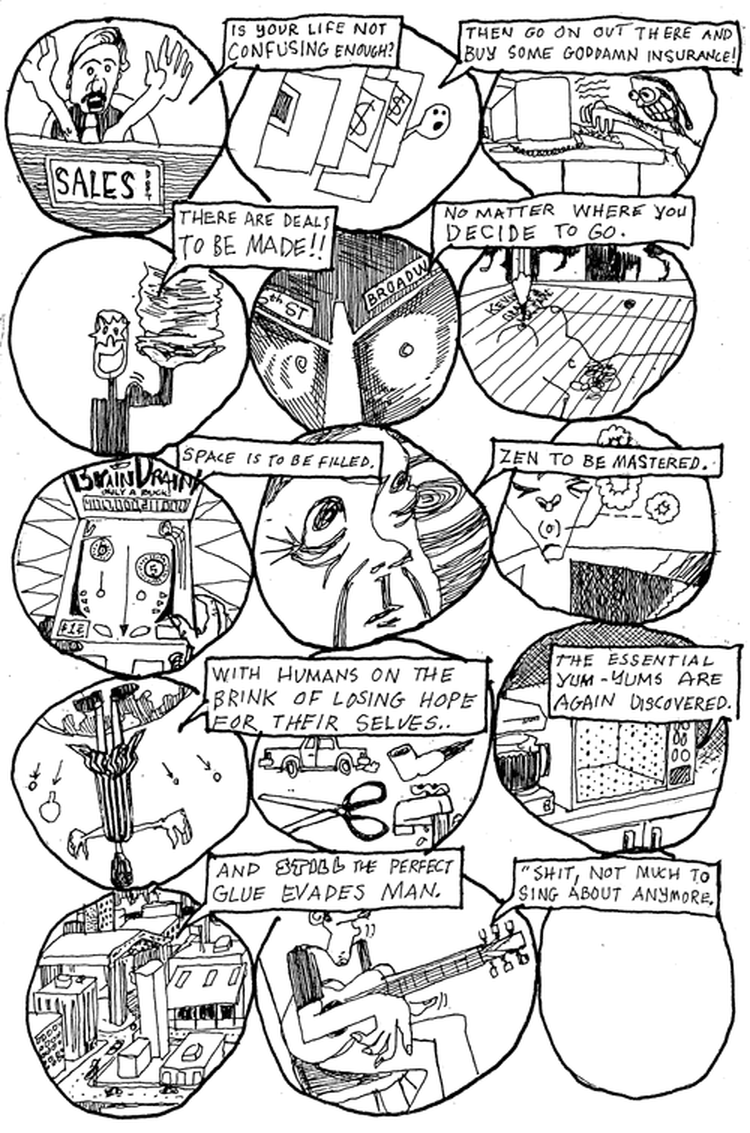 IS YOUR LIFE NOT
CONFUSING ENOUGH?
THEN GO ON OUT THERE AND
BUY SOME GODDAMN INSURANCE!
SALES
$
$
THERE ARE DEALS
TO BE MADE!!
NO MATTER WHERE YOU
DECIDE TO GO.
TH ST
BROADW
SPACE IS TO BE FILLED.
ZEN TO BE MASTERED.
BRAIN DRAIN
ONLY A BUCK!
5
WITH HUMANS ON THE
BRINK OF LOSING HOPE
FOR THEIR SELVES..
THE ESSENTIAL
YUM-YUMS ARE
AGAIN DISCOVERED.
AND STILL THE PERFECT
GLUE EVADES MAN.
"SHIT, NOT MUCH TO
SING ABOUT ANYMORE.